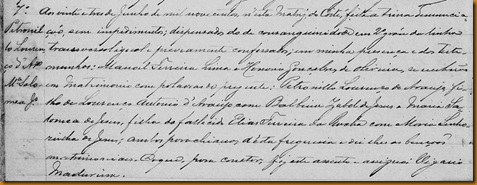 7º Aos vinte e tres de Junho de mil nove centos, n'esta Matriz de feita a trina denunciação
Petronil sem impedimento; dispensados de consanguinidade em 2º grau da linha
lo Louren transversal igual e previamente confessados, em minha presença e das teste
ço d'Arº munhas: Manoel Pereira Lima e Honorio Gonçalves de Oliveira, se receberão
Mª Salo em Matrimonio com palavras de presente: Petronillo Lourenço de Araujo, fi
mea Jª lho de Lourenço Antonio d'Araujo com Balbina Isabel de Jesus e Maria Salo
mea de Jesus, filha do fallecido Elias Ferreira da Rocha com Maria
de Jesus; ambos parochianos d'esta freguesia e dei lhes as bençoes
matrimoniaes. E para constar, fiz este assento e assignei.
Madureira.